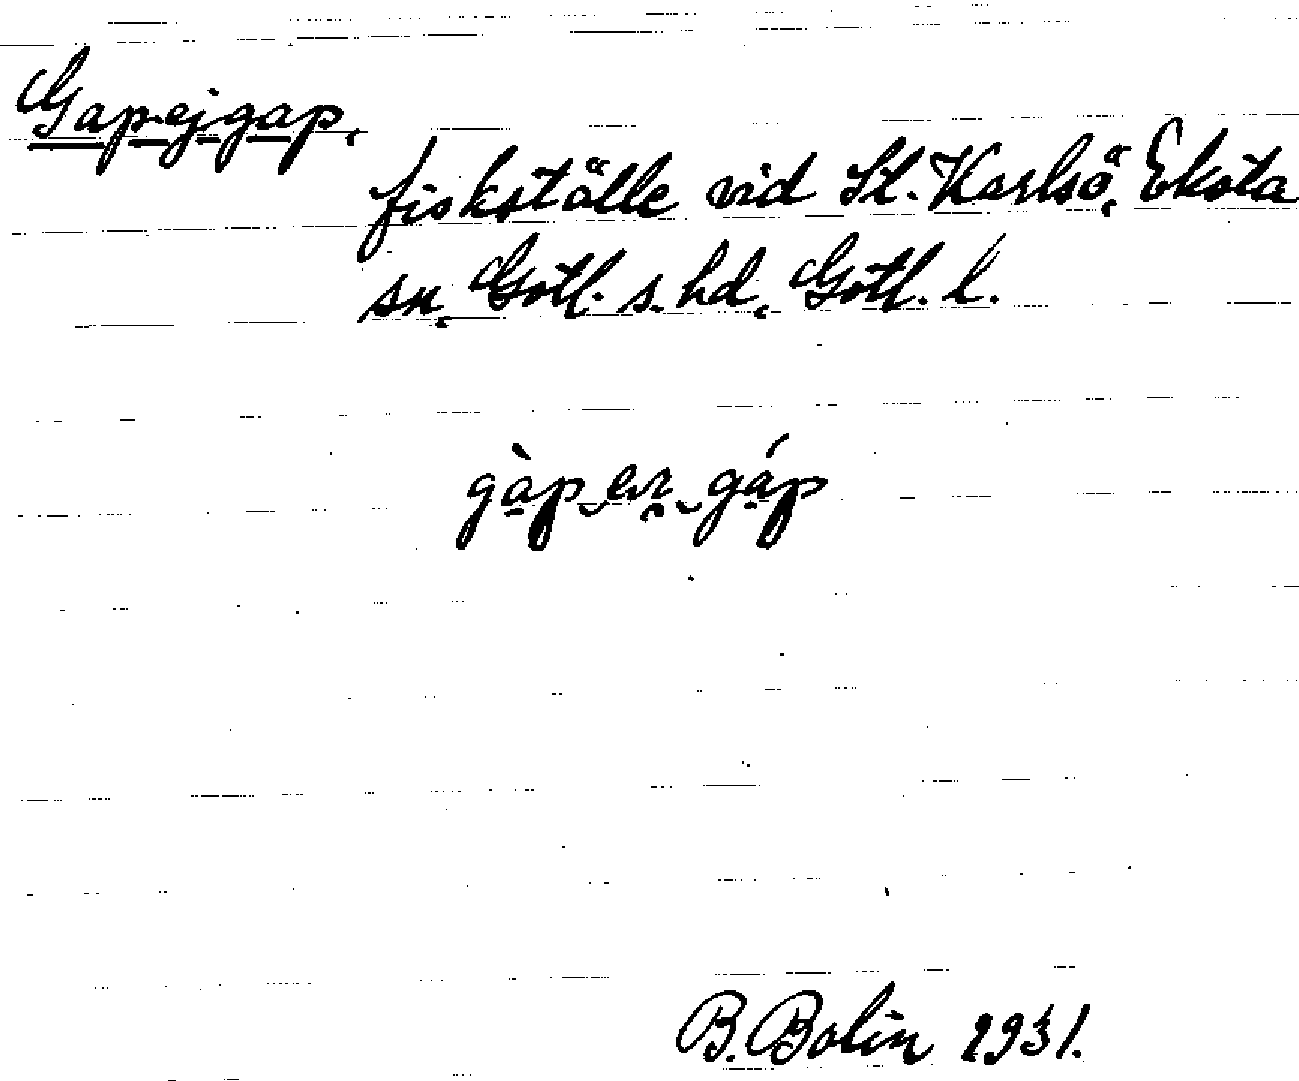 Gap-ej-gap,
fiskställe vid St. Karlsö, Eksta
sn, Gotl. s. hd, Gotl. l.
gàp
gáp
B. Bolin 1931.